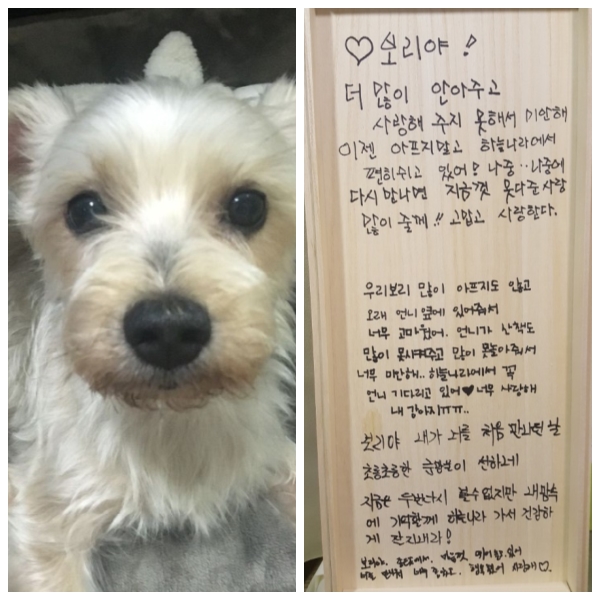 ♡보리야!
더 많이 안아주고
사랑해 주지 못해서 미안해
이젠 아프지말고 하늘나라에서
편히쉬고 있어! 나중..나중에
다시 만나면 지금껏 못다준 사랑
많이 줄께!! 고맙고 사랑한다.
우리보리 많이 아프지도 않고
오래 언니 옆에 있어줘서
너무 고마웠어. 언니가 산책도
많이 못시켜주고 많이 못놀아줘서
너무 미안해.. 하늘나라에서 꼭
언니 기다리고 있어♥너무 사랑해
내 강아지ㅠㅠ..
보리야 내가 너를 처음 만나던 날
초롱초롱한 눈빛이 선하네
지금은 두번다시 볼수 없지만 내 맘속
에 기억할께 하늘나라 가서 건강하
게 잘 지내라!
보리야.